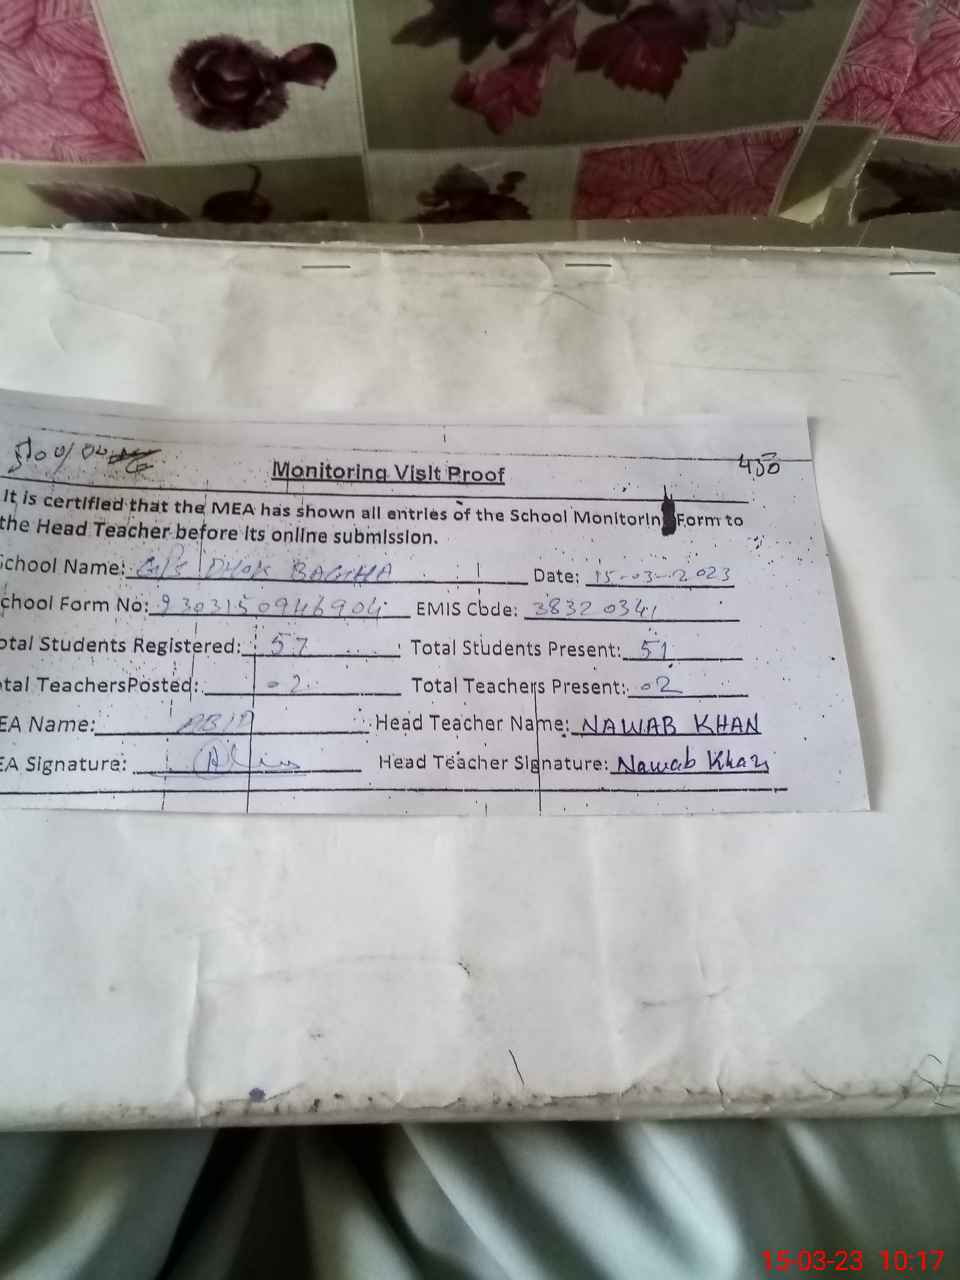 450
Monitoring Visit Proof
It is certified that the MEA has shown all entries of the School Monitorin Form to
the Head Teacher before its online submission.
chool Name: G/PS DHOK BAGHA Date: 15-03-2023
chool Form No: 9303150946904 EMIS Code: 38320341
otal Students Registered: 57 Total Students Present: 51
tal TeachersPosted: 02 Total Teachers Present: 02
EA Name: ABID Head Teacher Name: NAWAB KHAN
EA Signature: Head Teacher Signature: Nawab Khan
15-03-23 10:17